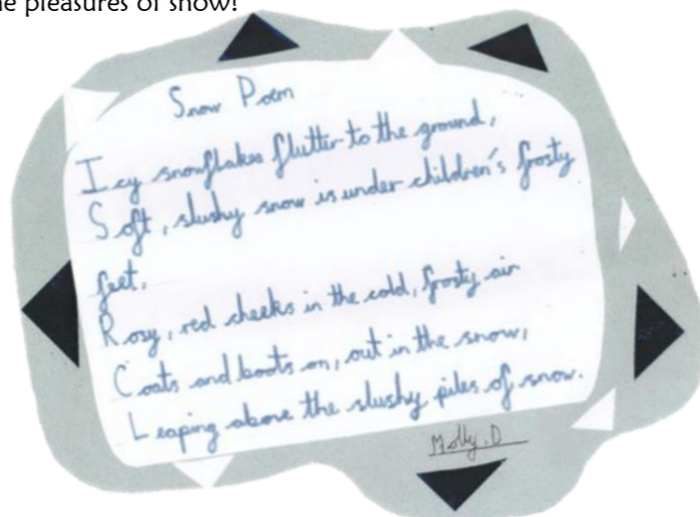 he pleasures of snow!
Snow Poem
Icy snowflakes flutter to the ground,
Soft, slushy snow is under children's frosty
feet,
Rosy, red cheeks in the cold, frosty air
Coats and boots on, out in the snow,
Leaping above the slushy piles of snow.
Molly.D